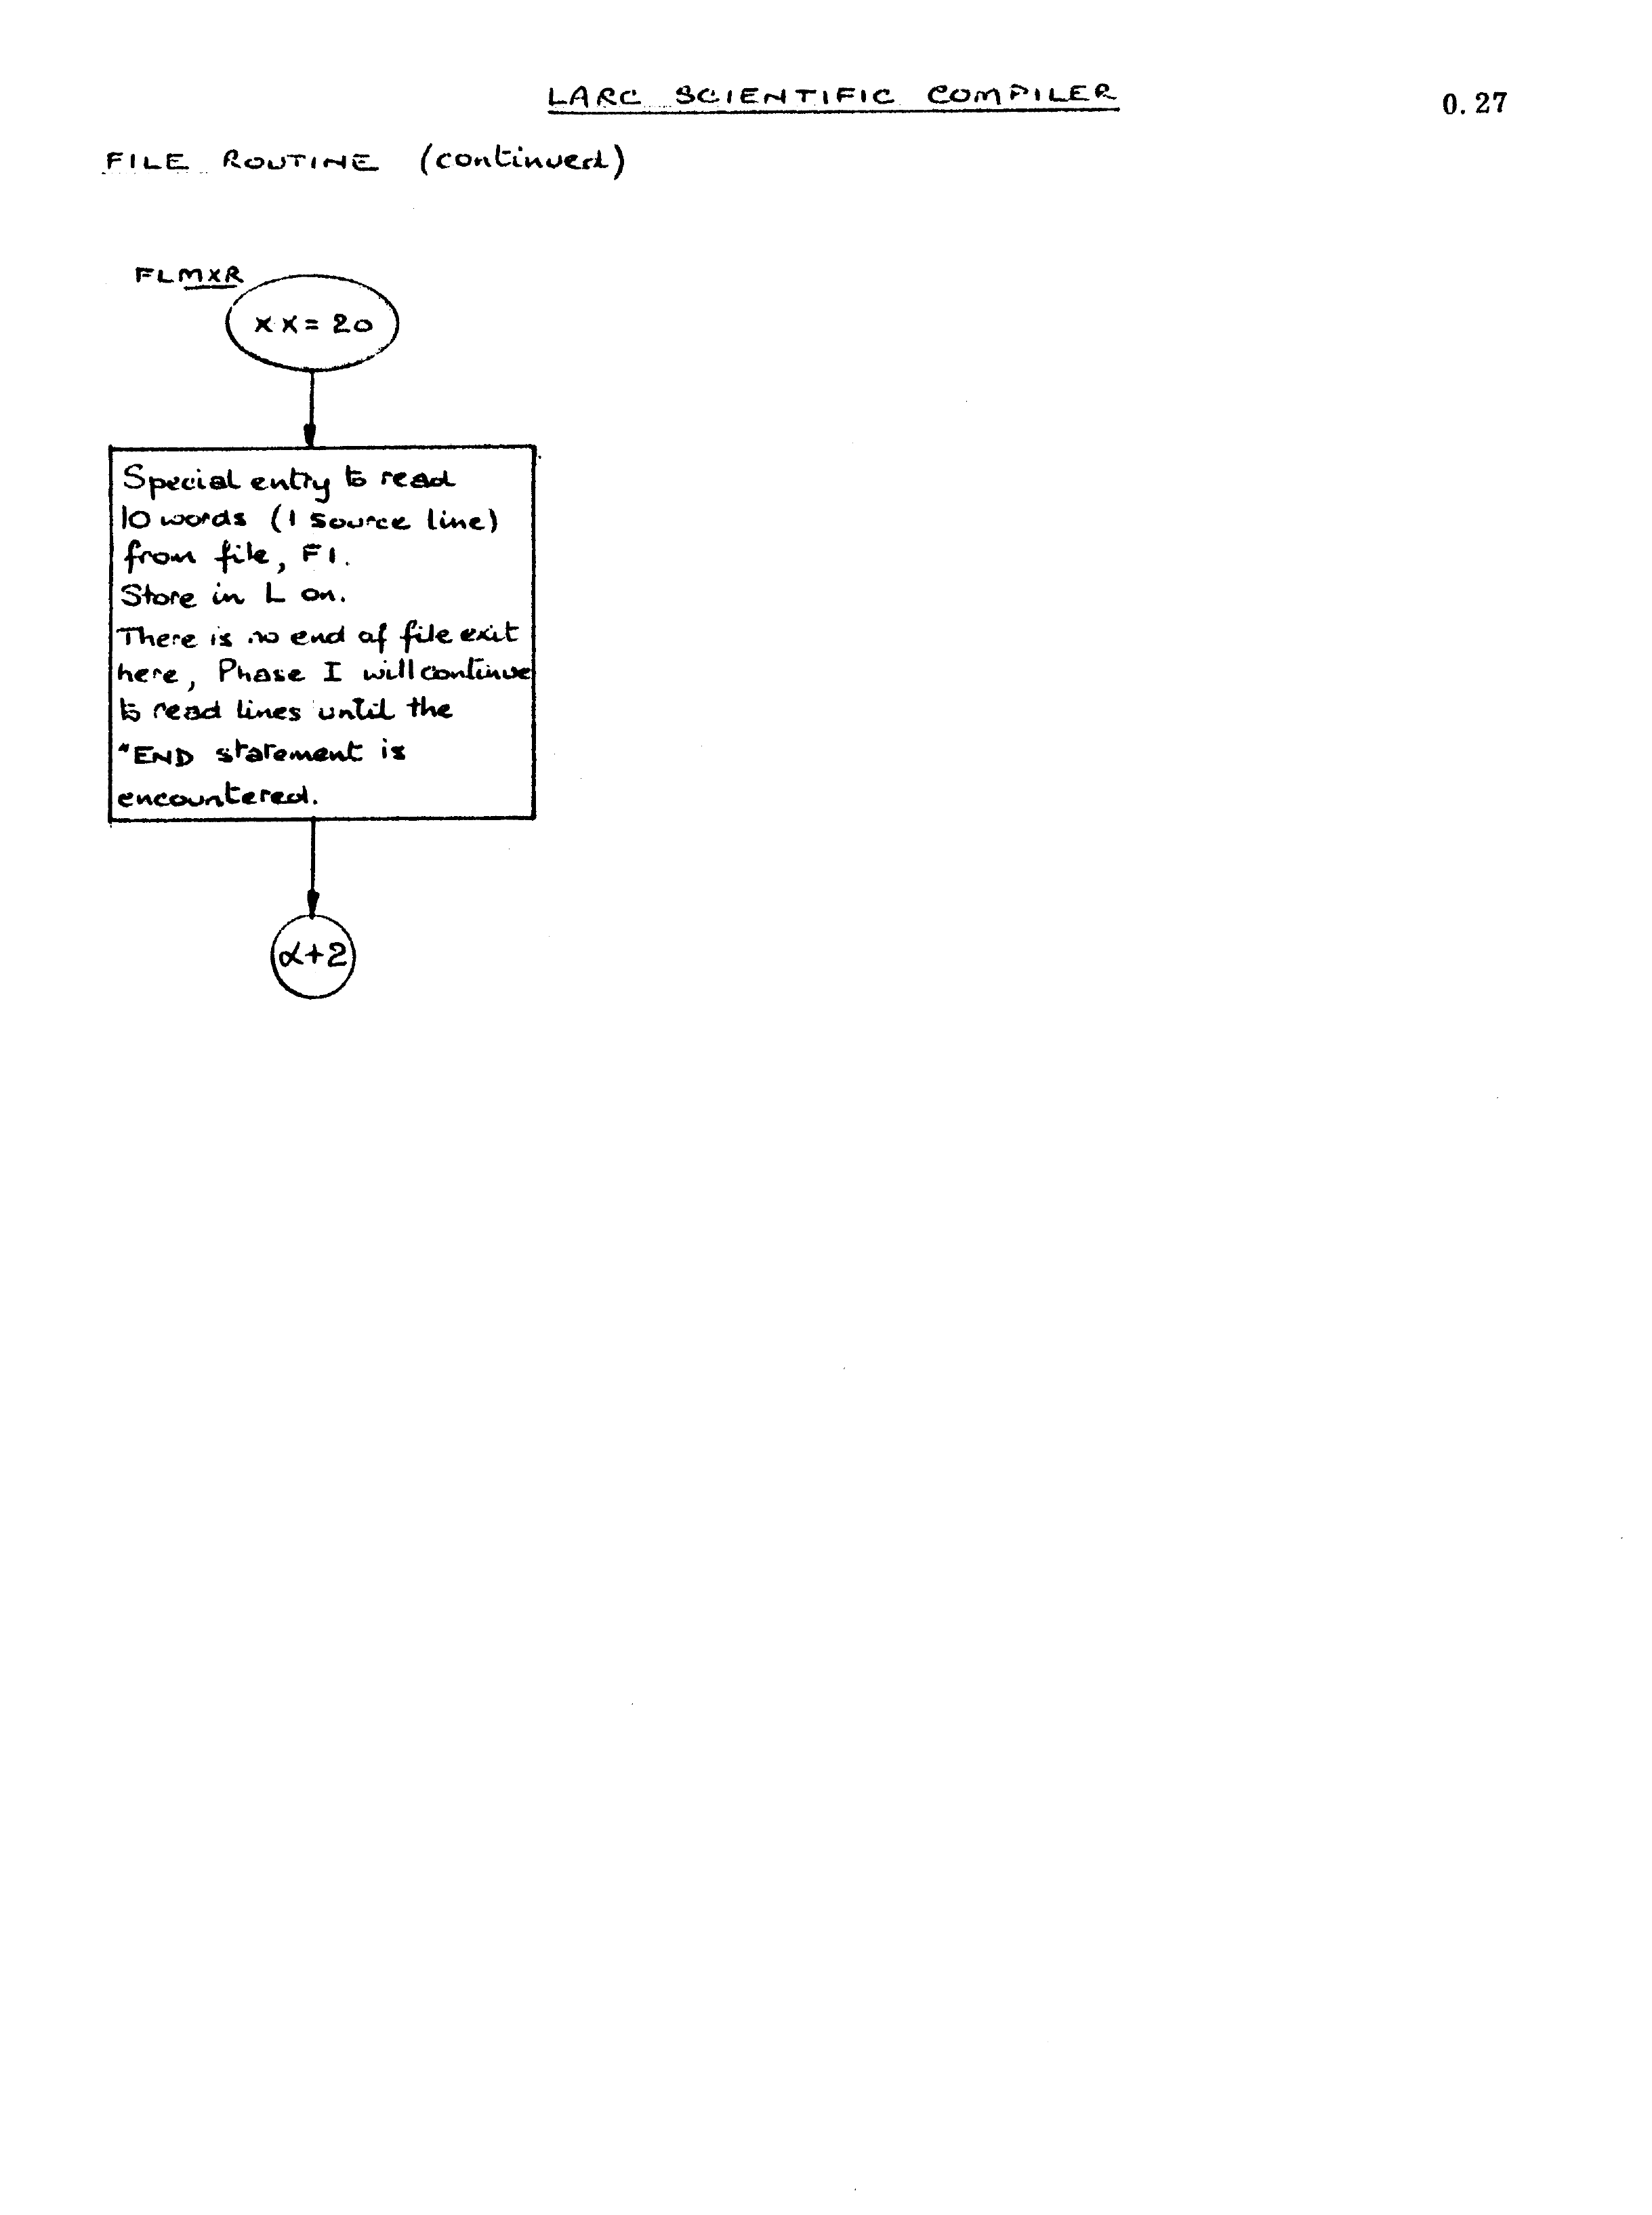 LARC SCIENTIFIC COMPILER
0.27
FILE ROUTINE (continued)
FLMXR
xx=20
Special entry to read
10 words (1 source line)
from file, F1.
Store in L on.
There is no end of file exit
here, Phase I will continue
to read lines until the
"END statement is
encountered.
α+2